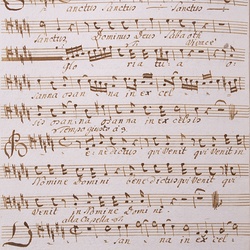 Sanctus Sanctus
Sanctus, Dominus Deus Sabaoth
Vivace
Glo ria tu a
sanna osanna in ex cel
sis osanna osanna in ex celsis
Tempo
Be ne dictus qui Venit qui Venit in
Nomine Domini benedictus qui Venit qui
Venit in Nomine Domini.
alla Capella
sanna in ex cel